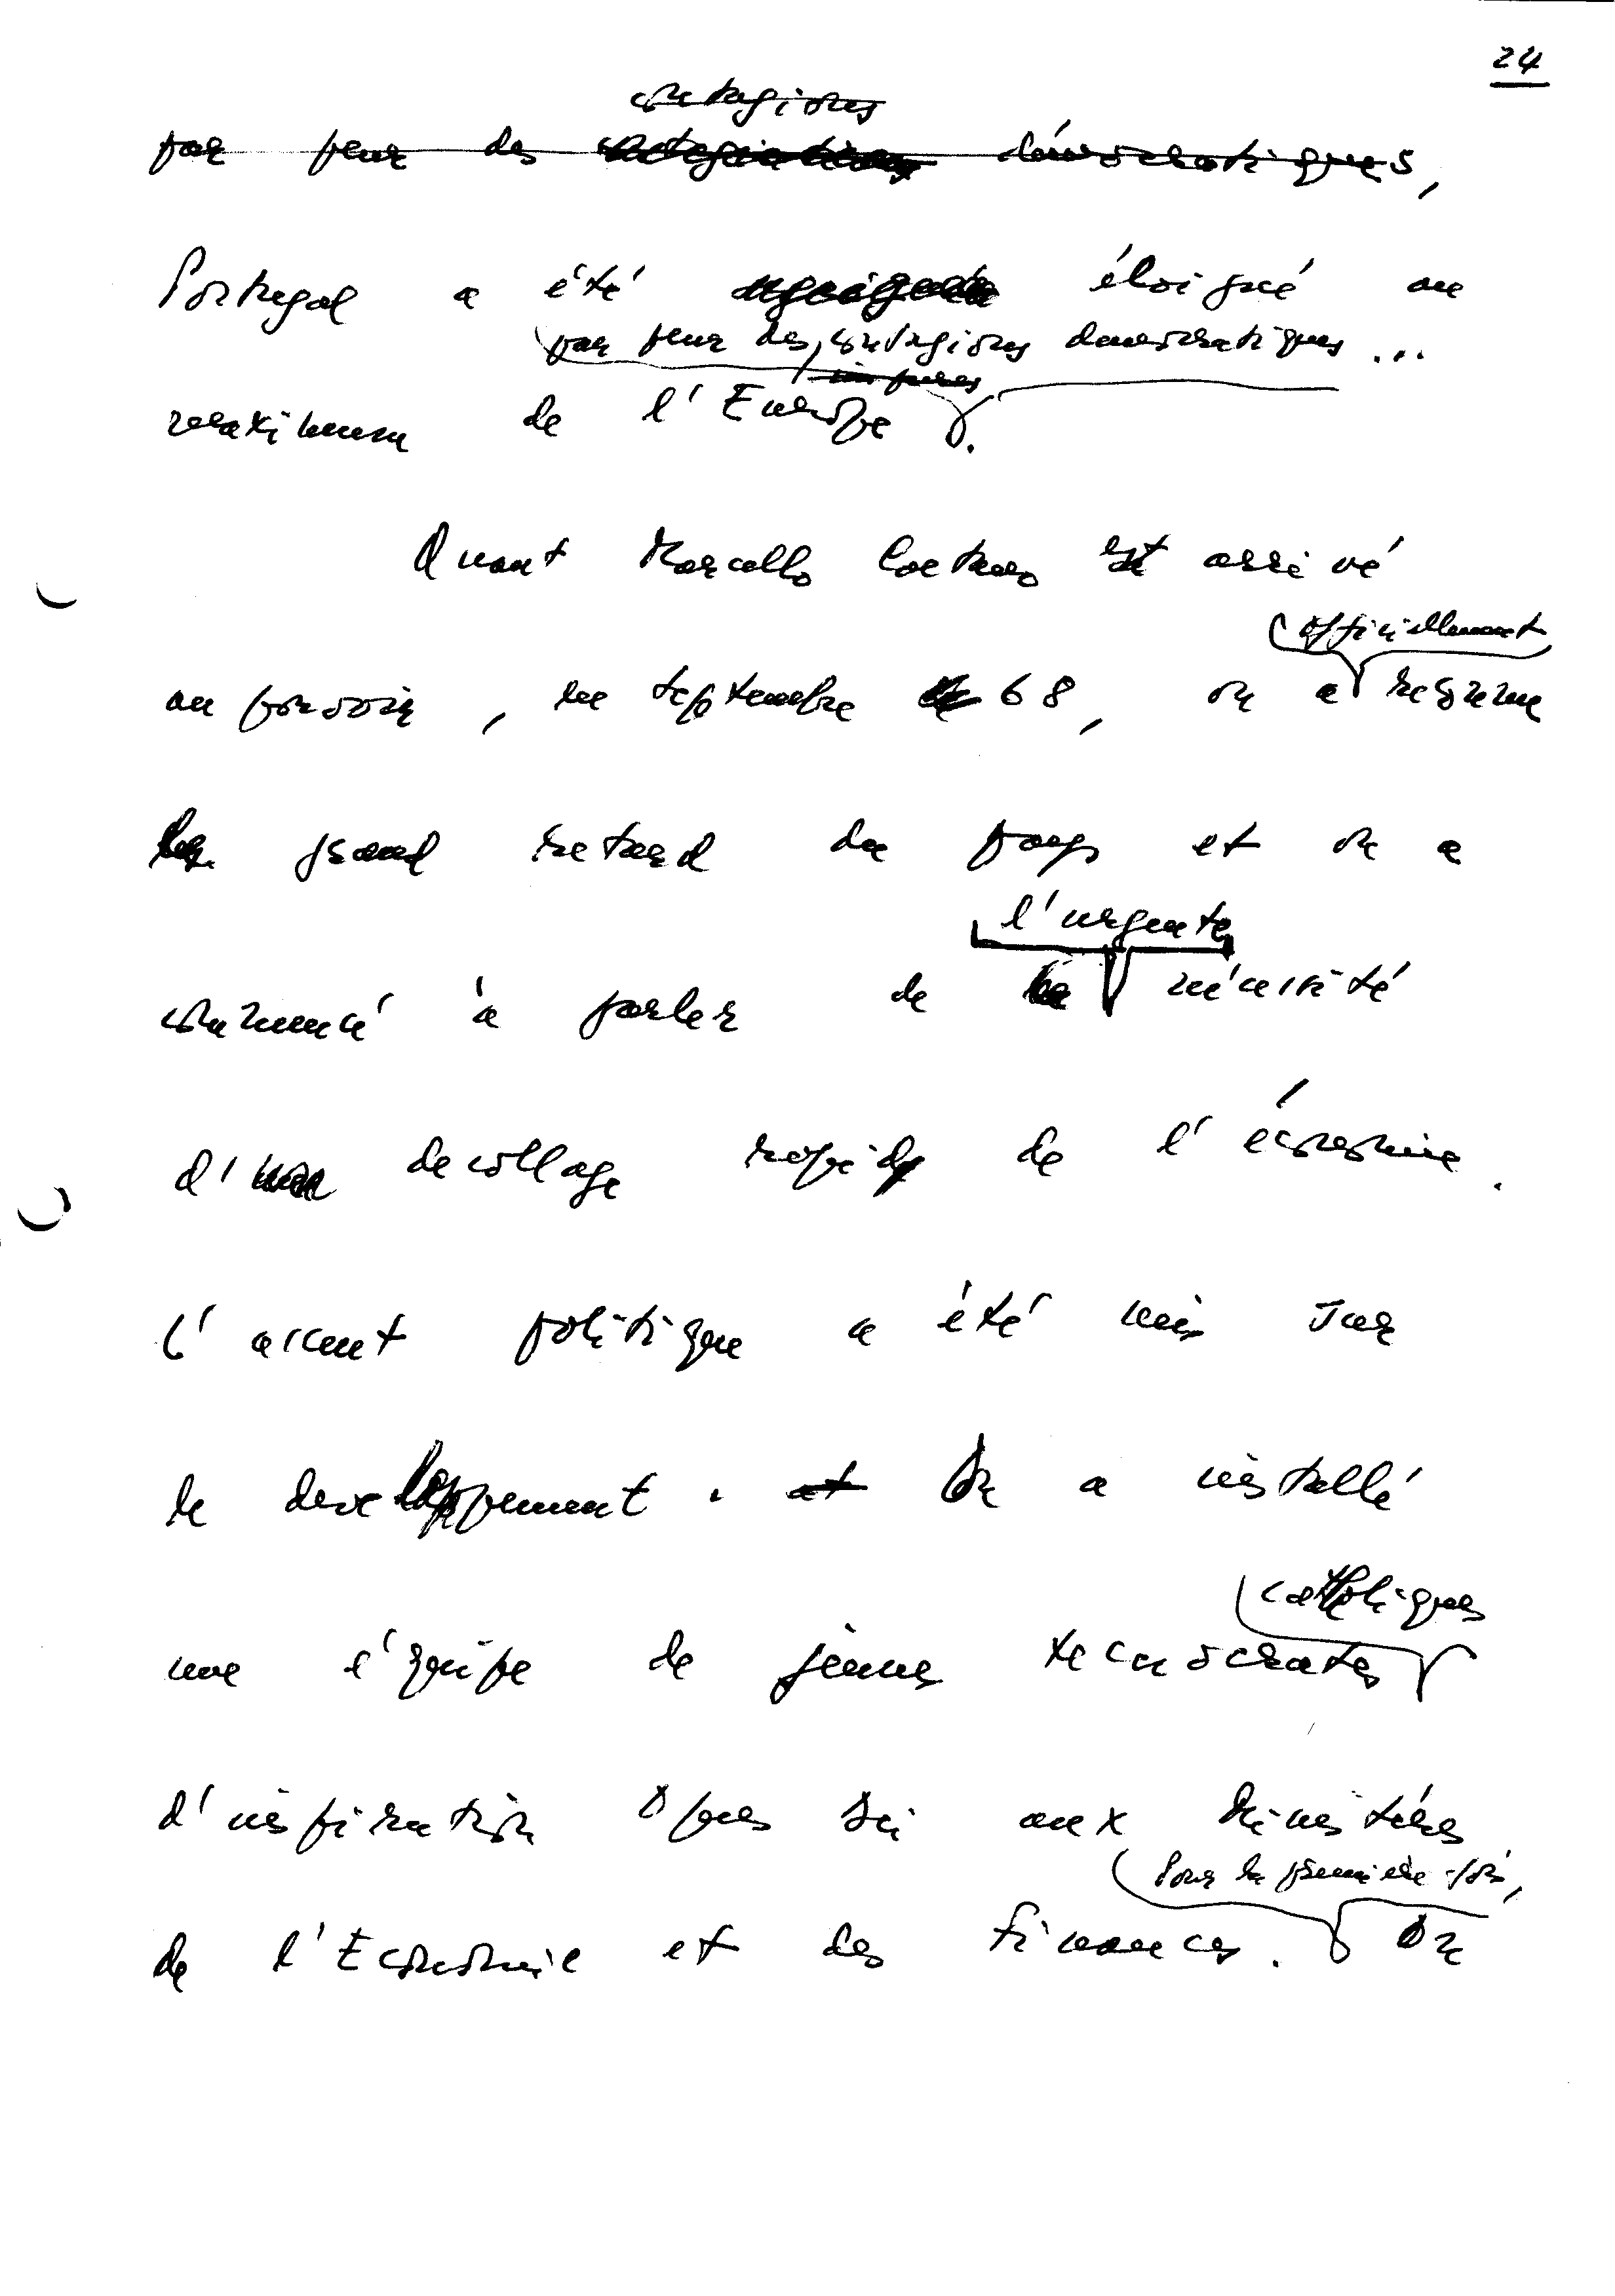 24
contagions
par peur des démocratiques,
Portugal a été éloigné au
par peur des contagions democratiques ...
impures
maximum de l'Europe.
Quant Marcello Caetano est arrivé
officiellement
au pouvoir, en septembre 68, on a reconnu
le grand retard du pays et on a
l'urgente
commencé à parler de nécessité
d'un decollage rapide de l'économie.
L'accent politique a été mis sur
le developpement. et On a installé
catholiques
une équipe de jeunes technocrates
d'inspiration Opus Dei aux Ministères
Pour la première fois,
de l'Economie et des Finances. On